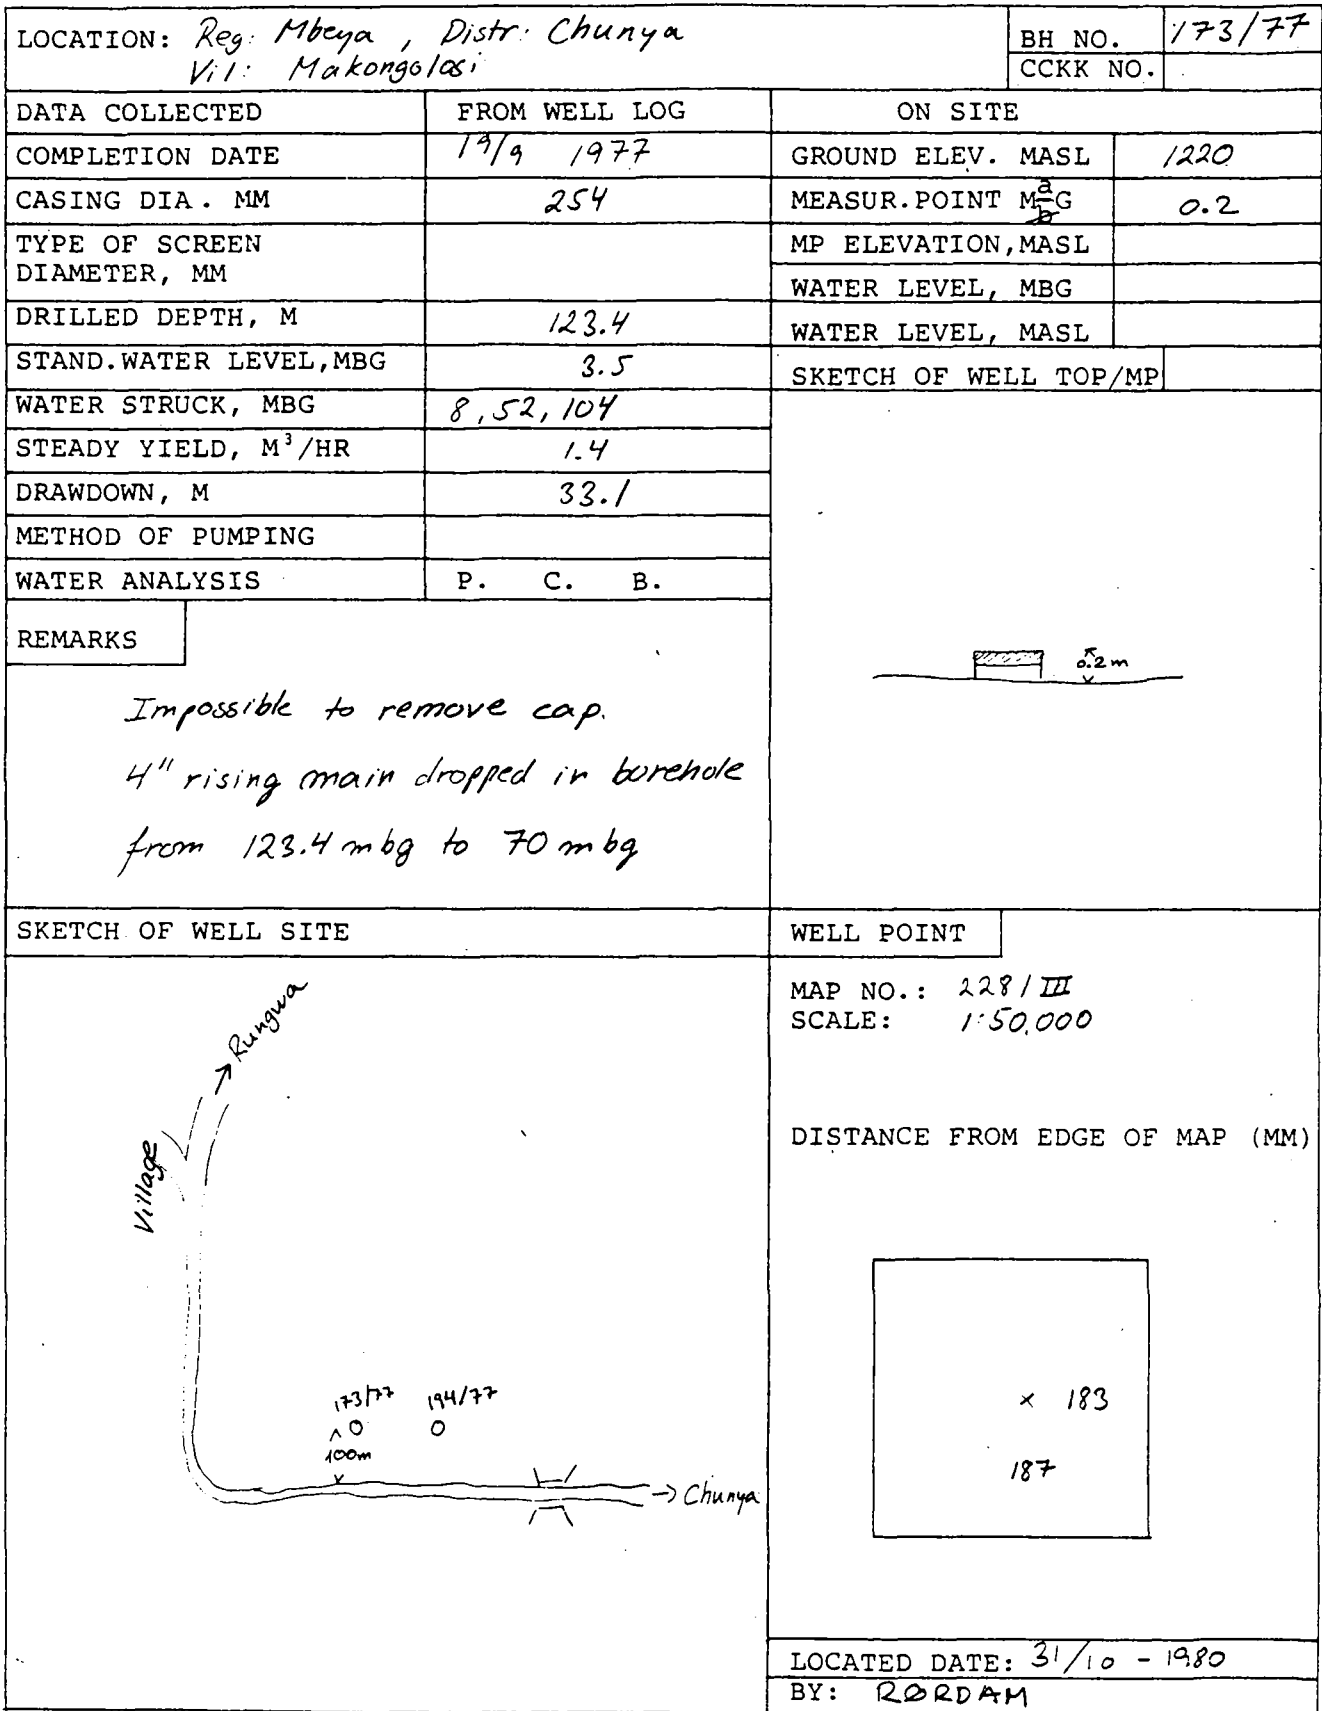 LOCATION: Reg: Mbeya , Distr: Chunya
Vil: Makongolosi
BH NO. 173/77
CCKK NO.
DATA COLLECTED FROM WELL LOG
COMPLETION DATE 19/9 1977
CASING DIA. MM 254
TYPE OF SCREEN
DIAMETER, MM
DRILLED DEPTH, M 123.4
STAND.WATER LEVEL,MBG 3.5
WATER STRUCK, MBG 8,52,104
STEADY YIELD, M³/HR 1.4
DRAWDOWN, M 33.1
METHOD OF PUMPING
WATER ANALYSIS P. C. B.
ON SITE
GROUND ELEV. MASL 1220
MEASUR.POINT M a/b G 0.2
MP ELEVATION,MASL
WATER LEVEL, MBG
WATER LEVEL, MASL
SKETCH OF WELL TOP/MP
0.2m
REMARKS
Impossible to remove cap.
4" rising main dropped in borehole
from 123.4 mbg to 70 mbg
SKETCH OF WELL SITE
→ Rungwa
Village
173/77 194/77
100m
→ Chunya
WELL POINT
MAP NO.: 228/III
SCALE: 1:50,000
DISTANCE FROM EDGE OF MAP (MM)
x 183
187
LOCATED DATE: 31/10 - 1980
BY: RØRDAM